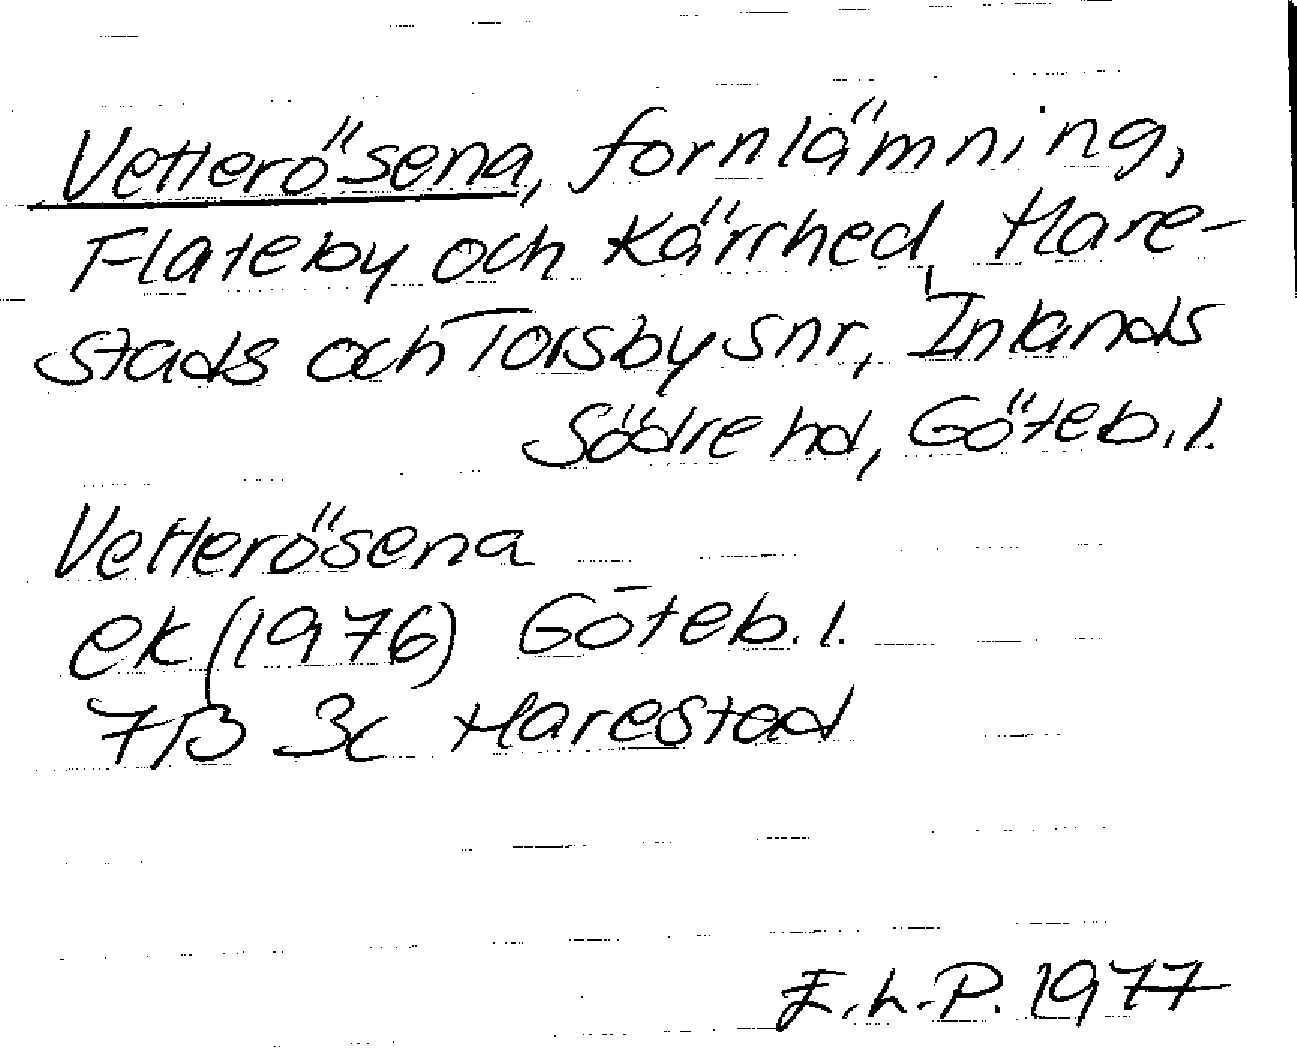 Vetterösena, fornlämning,
Flateby och Kärrhed, Hare-
stads och Torsby snr, Inlands
Södre hd, Göteb. l.
Vetterösena
ek (1976) Göteb. l.
7B 3c Harestad
E.L.P. 1977